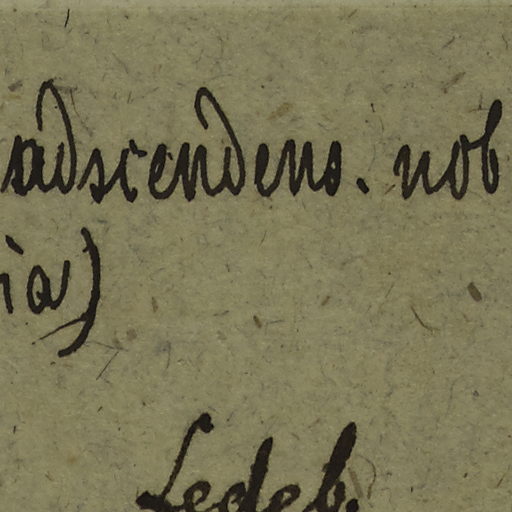 adscendens. nob
ia)
Ledeb.